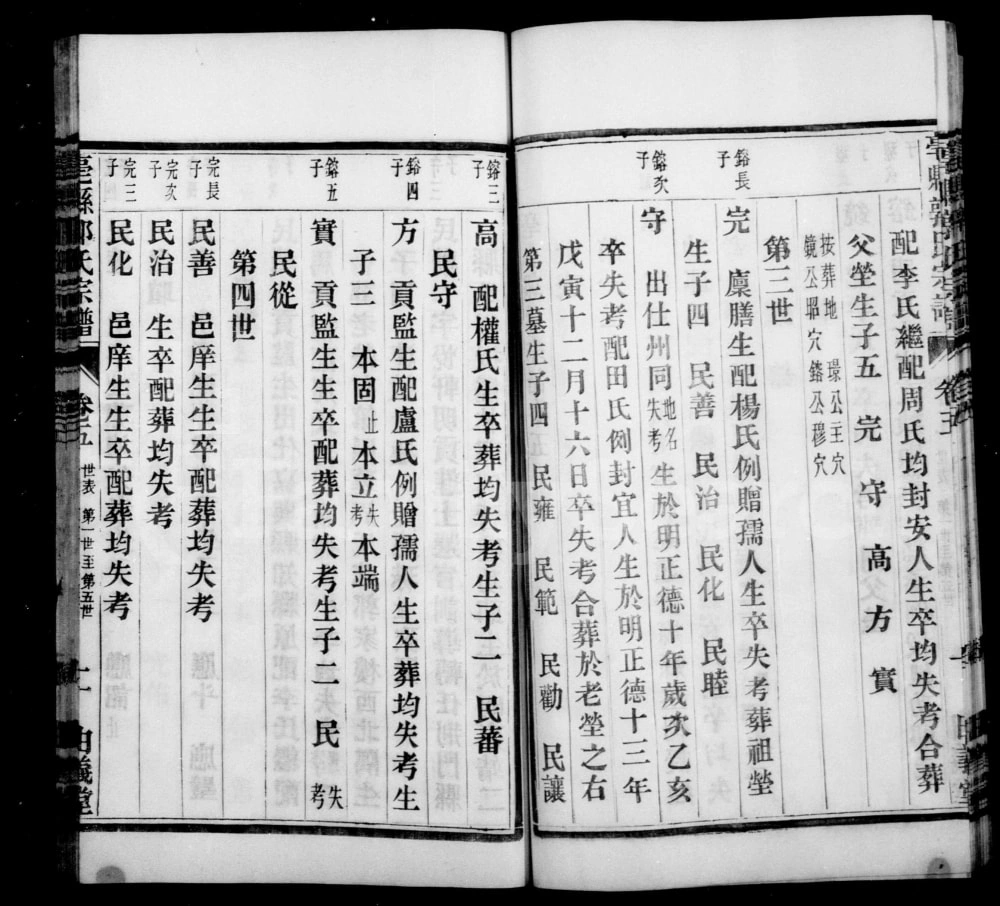 配李氏繼配周氏均封安人生卒均失考合葬
父塋生子五 完 守 高 方 實
按葬地 璟公主穴
鏡公昭穴 鎔公穆穴
第三世
鎔長子
完 廩膳生配楊氏例贈孺人生卒失考葬祖塋
生子四 民善 民治 民化 民睦
鎔次子
守 出仕州同地名失考生於明正德十年歲次乙亥
卒失考配田氏例封宜人生於明正德十三年
戊寅十二月十六日卒失考合葬於老塋之右
第三墓生子四 民雍 民範 民勸 民讓
鎔三子
高 配權氏生卒葬均失考生子二 民蕃
民守
鎔四子
方 貢監生配盧氏例贈孺人生卒葬均失考生
子三 本固止 本立失考 本端
鎔五子
實 貢監生生卒配葬均失考生子二 民失考
民從
第四世
完長子
民善 邑庠生生卒配葬均失考
完次子
民治 生卒配葬均失考
完三子
民化 邑庠生生卒配葬均失考
氏宗譜 卷五 世表 第一世至第五世 由義堂